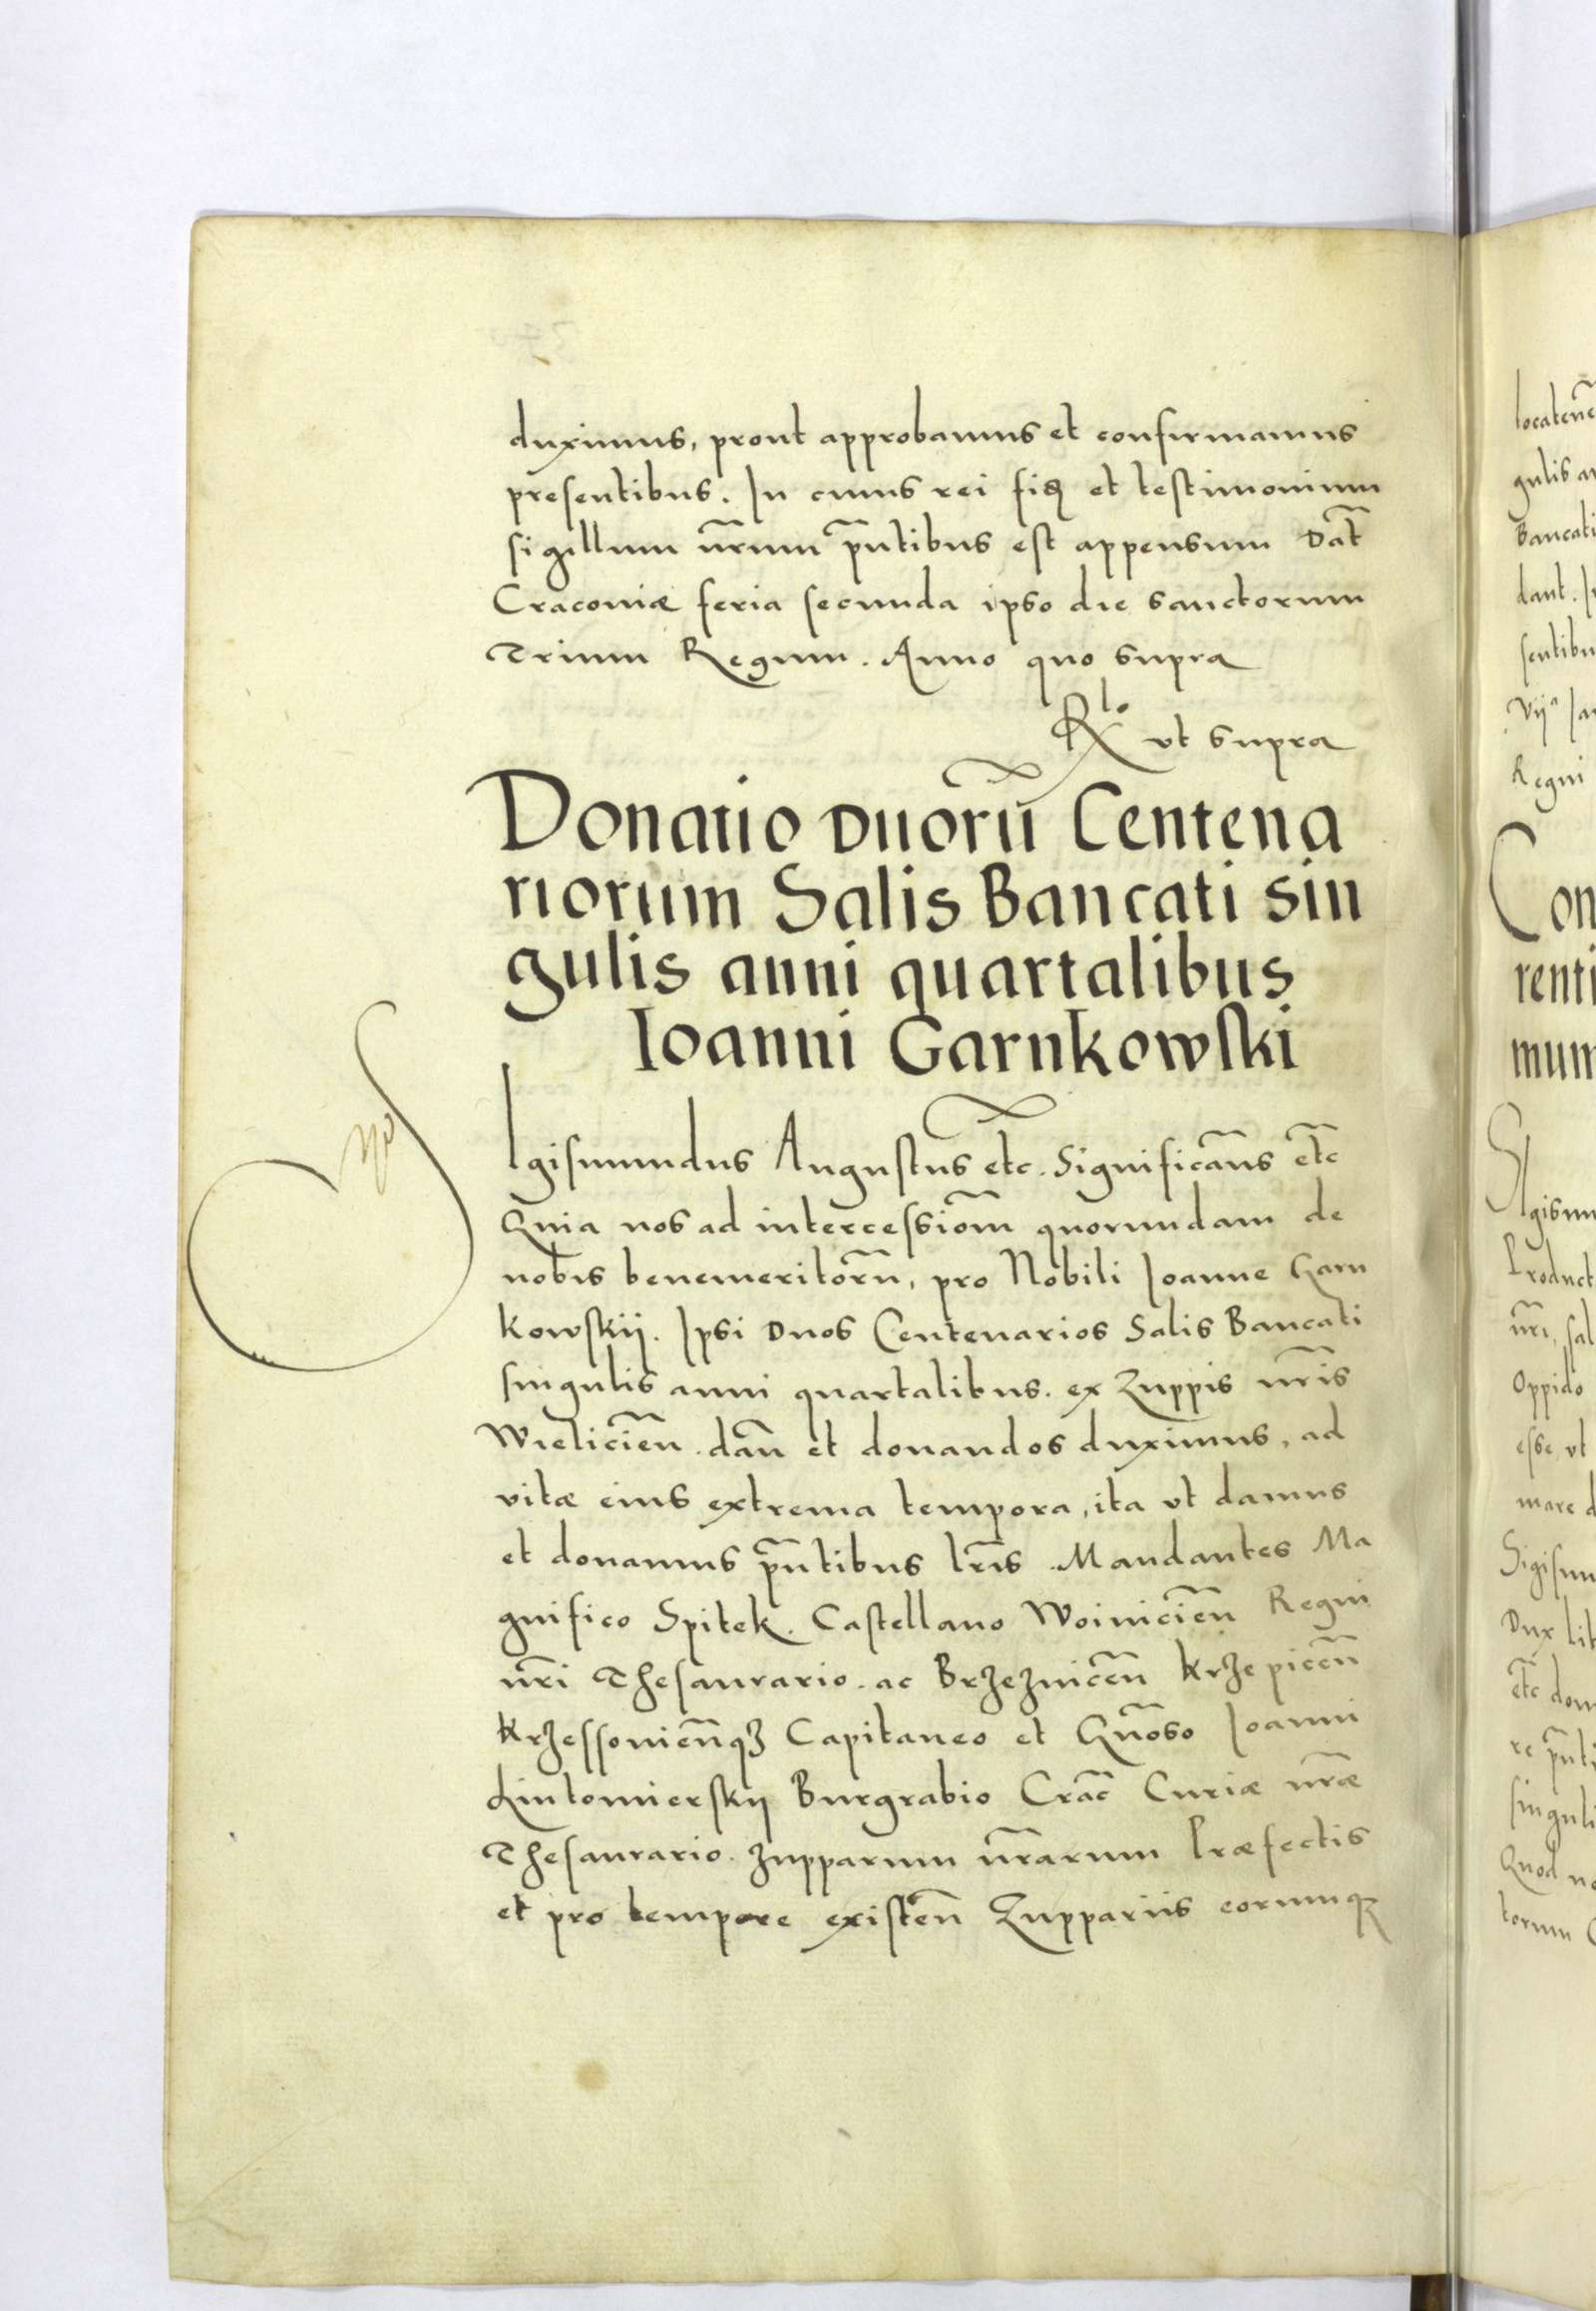 duximus, prout approbamus et confirmamus
presentibus. In cuius rei fidē et testimonium
sigillum nr̃um pñtibus est appensum Dat̃
Cracoviæ feria secunda ipso die sanctorum
Trium Regum. Anno quo supra
Rlo ut supra
Donatio duorũ Centena
riorum Salis Bancati sin
gulis anni quartalibus
Ioanni Garnkowski
SIgismundus Augustus etc. Significam̃s etc̃
Quia nos ad intercessiom̃ quorundam de
nobis benemeritorũ, pro Nobili Ioanne Garn
kowskij. Ipsi duos Centenarios Salis Bancati
singulis anni quartalibus. ex Zuppis nr̃is
Wielicieñ. dañ et donandos duximus, ad
vitæ eius extrema tempora, ita ut damus
et donamus pñtibus lr̃is. Mandantes Ma
gnifico Spitek. Castellano Woinicieñ Regni
nr̃i Thesaurario. ac Brzezniceñ Krzepiceñ
Krzessonieñq₃ Capitaneo et Gñoso Ioanni
Lutomierskij Burgrabio Crac̃ Curiæ nr̃æ
Thesaurario. zupparum nr̃arum Præfectis
et pro tempore existeñ Zuppariis eorumq₃
locateñ
gulis an
Bancati
dant. I
sentibu
Vijª Ia
Regni
Con
renti
mum
SIgism
Product
nr̃i, sal
Oppido
esse, ut
mare d
Sigism
Dux lit
etc̃ dom
re pñti
singuli
Quod no
torum C